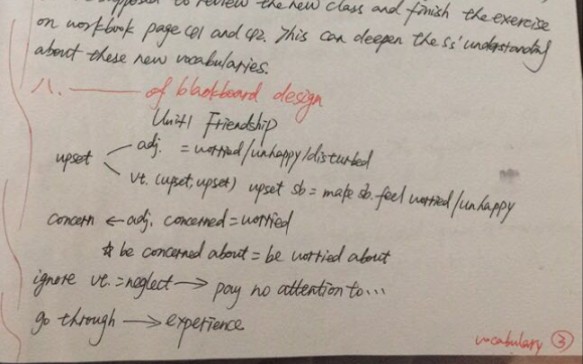 to review the new class and finish the exercise
on workbook page 41 and 42. This can deepen the Ss' understanding
about these new vocabularies.
八. —— of blackboard design
Unit1 Friendship
upset adj. = worried/unhappy/disturbed
vt. (upset, upset) upset sb = make sb. feel worried/unhappy
concern ← adj. concerned = worried
☆ be concerned about = be worried about
ignore vt. = neglect → pay no attention to...
go through → experience
vocabulary ③